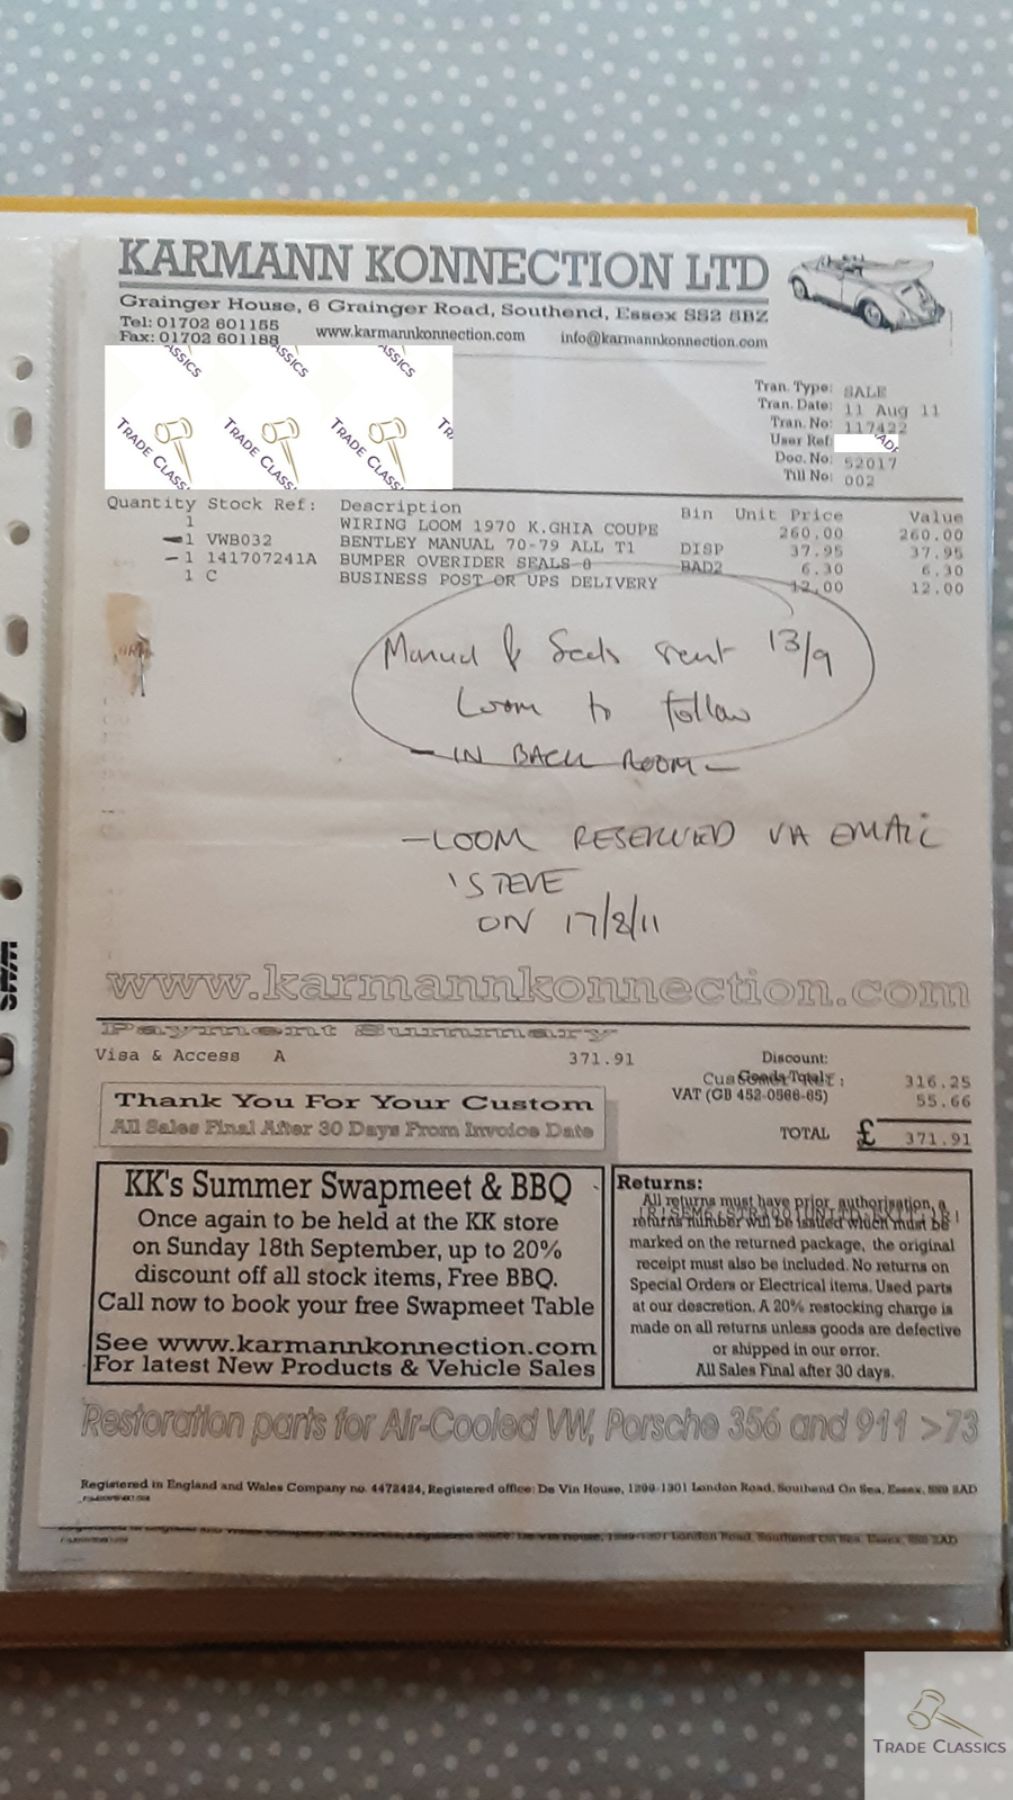 KARMANN KONNECTION LTD
Grainger House, 6 Grainger Road, Southend, Essex SS2 5BZ
Tel: 01702 601155
www.karmannkonnection.com info@karmannkonnection.com
Fax: 01702 601188
TRADE CLASSICS TRADE CLASSICS TRADE CLASSICS
Tran. Type: SALE
Tran. Date: 11 Aug 11
Tran. No: 117422
User Ref:
Doc. No: 52017
Till No: 002
Quantity Stock Ref: Description Bin Unit Price Value
1 WIRING LOOM 1970 K.GHIA COUPE 260.00 260.00
1 VWB032 BENTLEY MANUAL 70-79 ALL T1 DISP 37.95 37.95
1 141707241A BUMPER OVERIDER SEALS 0 BAD2 6.30 6.30
1 C BUSINESS POST OR UPS DELIVERY 12.00 12.00
Manual & Seals sent 13/9
Loom to follow
- IN BACK ROOM -
- LOOM RESERVED VIA EMAIL
'STEVE
ON 17/8/11
www.karmannkonnection.com
Payment Summary
Visa & Access A 371.91 Discount:
Goods Total: 316.25
VAT (GB 452-0566-65) 55.66
TOTAL £ 371.91
Thank You For Your Custom
All Sales Final After 30 Days From Invoice Date
KK's Summer Swapmeet & BBQ
Once again to be held at the KK store
on Sunday 18th September, up to 20%
discount off all stock items, Free BBQ.
Call now to book your free Swapmeet Table
See www.karmannkonnection.com
For latest New Products & Vehicle Sales
Returns:
All returns must have prior authorisation, a
returns number will be issued which must be
marked on the returned package, the original
receipt must also be included. No returns on
Special Orders or Electrical items. Used parts
at our descretion. A 20% restocking charge is
made on all returns unless goods are defective
or shipped in our error.
All Sales Final after 30 days.
Restoration parts for Air-Cooled VW, Porsche 356 and 911 >73
Registered in England and Wales Company no. 4472424, Registered office: De Vin House, 1299-1301 London Road, Southend On Sea, Essex, SS9 2AD
London Road, Southend On Sea, Essex, SS9 2AD
TRADE CLASSICS